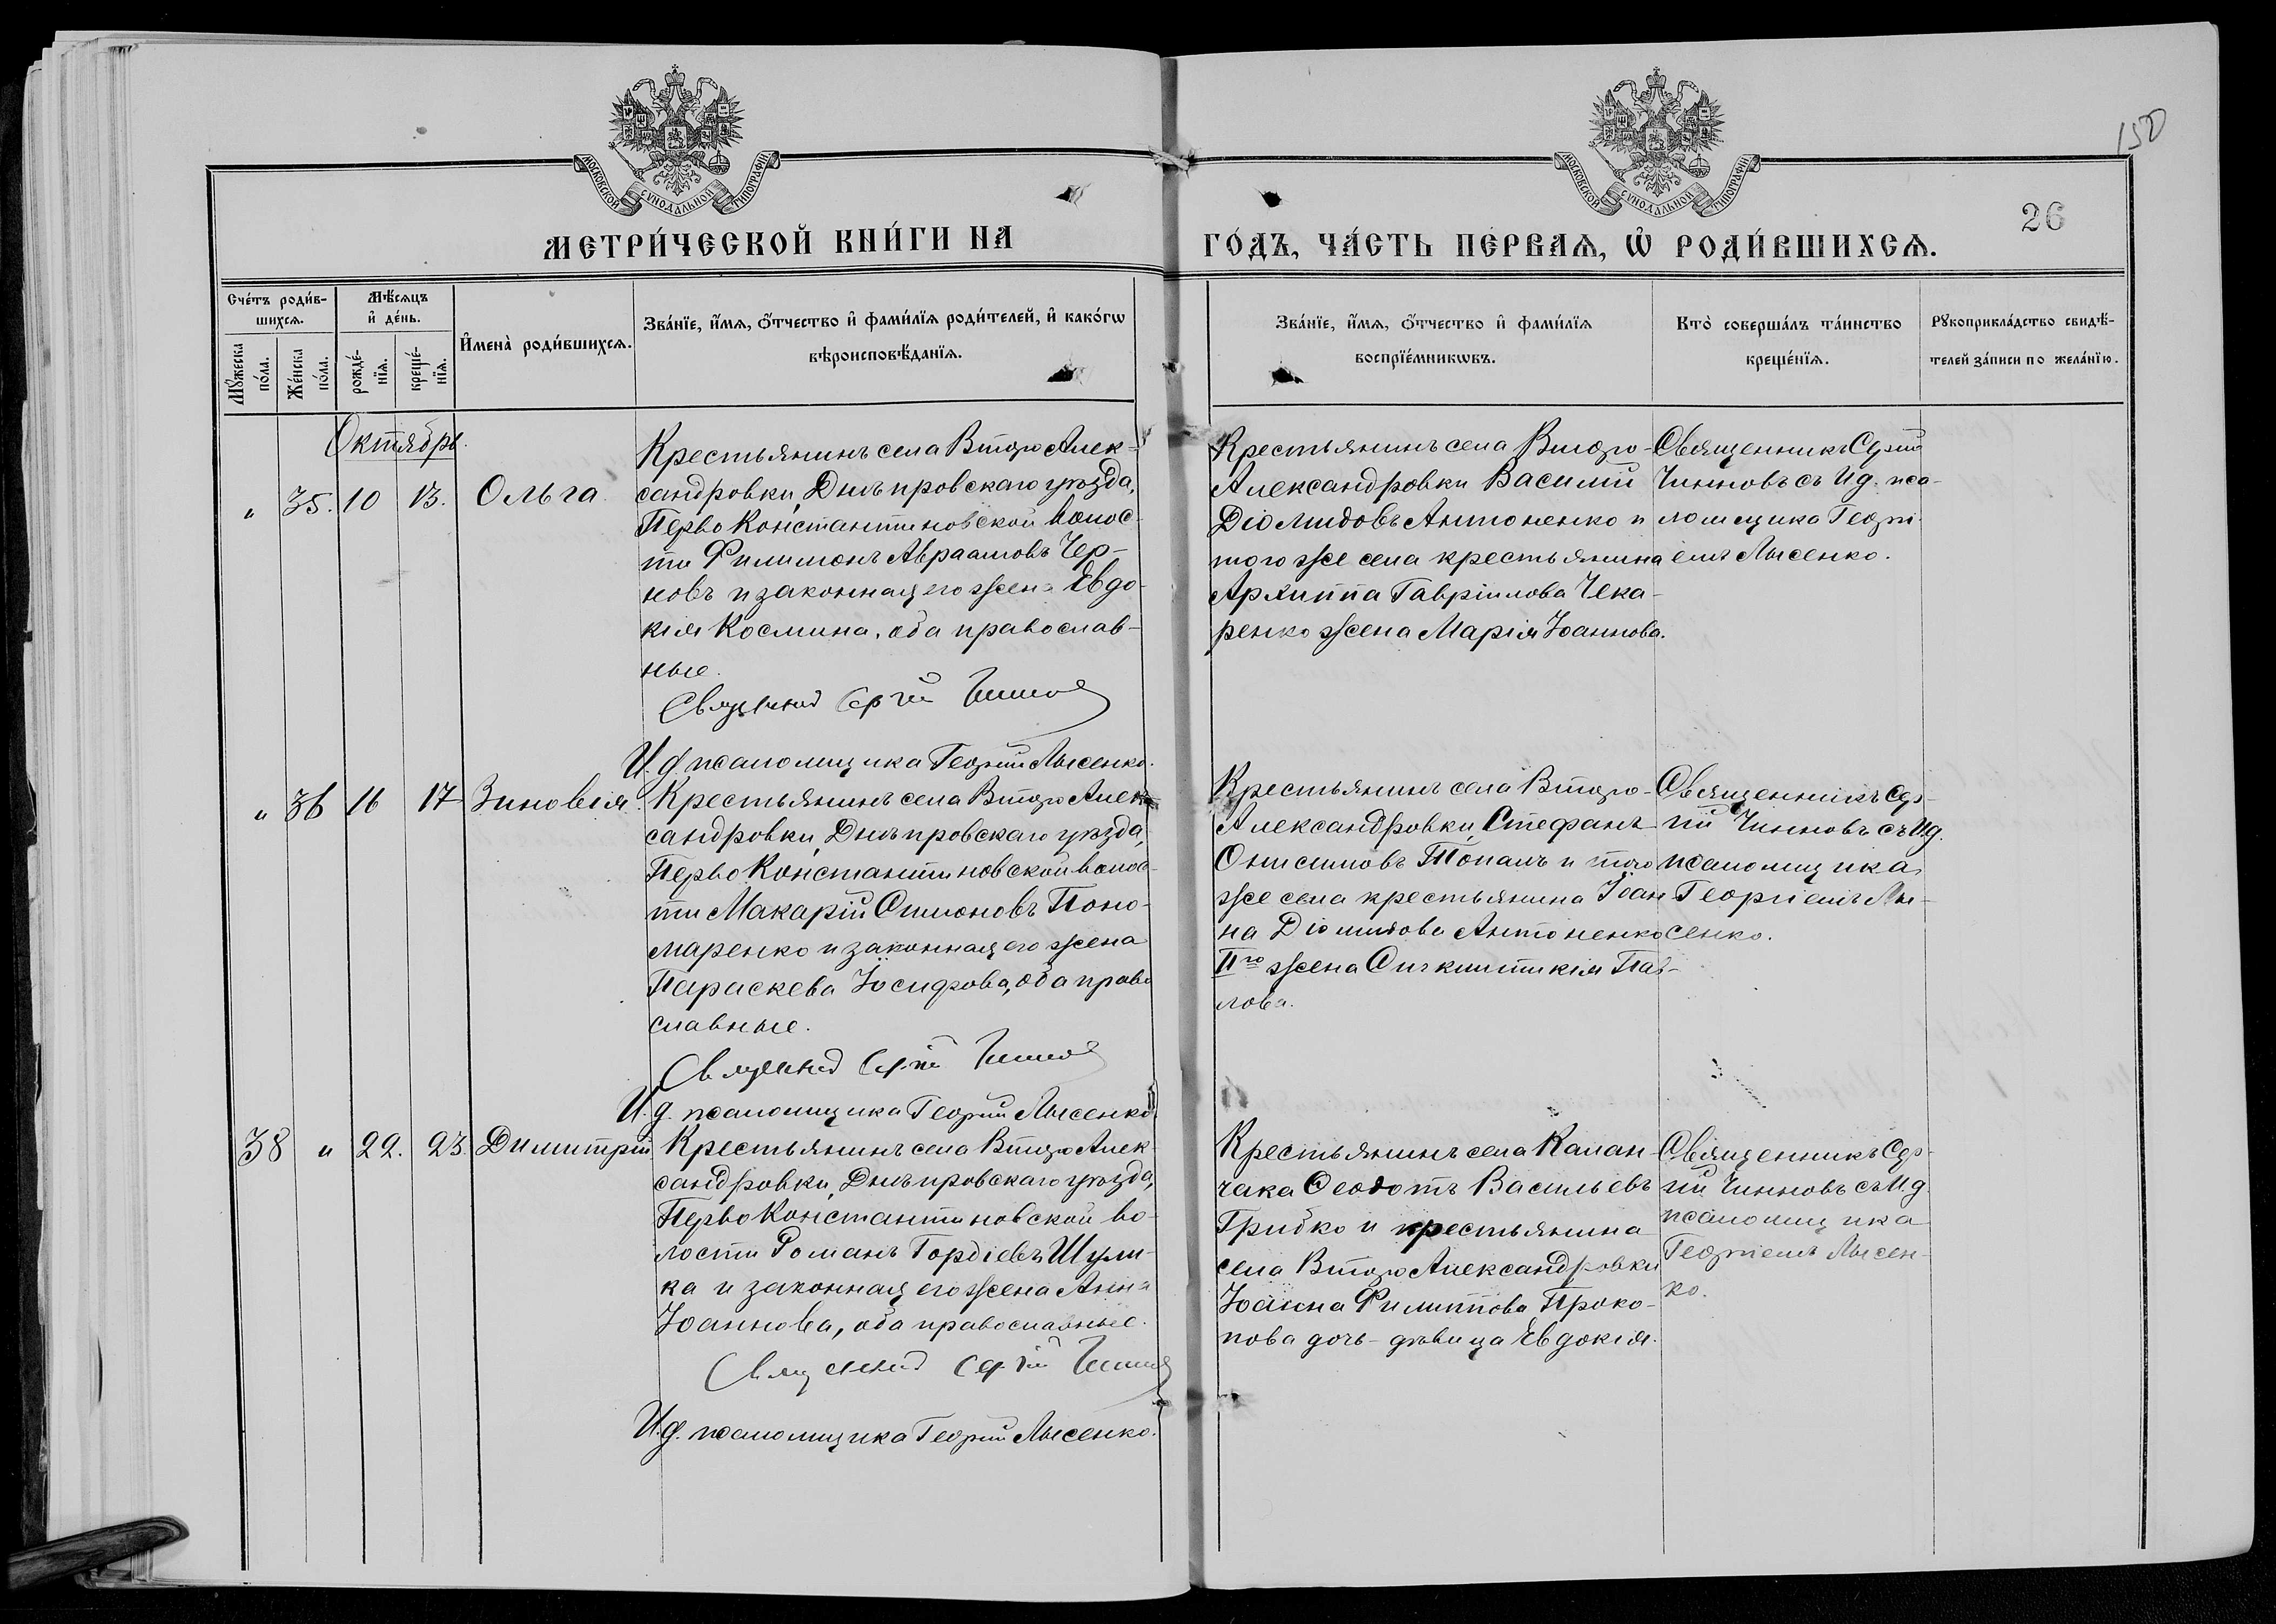 150
МОСКОВСКОЙ СѴНОДАЛЬНОЙ ТИПОГРАФІИ
МОСКОВСКОЙ СѴНОДАЛЬНОЙ ТИПОГРАФІИ
26
МЕТРИ́ЧЕСКОЙ КНИ́ГИ НА
ГО́ДЪ, ЧА́СТЬ ПЕ́РВАѦ, Ѡ҆ РОДИ́ВШИХСѦ.
Сче́тъ роди́в-
шихсѧ.
Мꙋ́жеска
по́ла.
Же́нска
по́ла.
Мѣ́сѧцъ
и҆ де́нь.
рожде́-
нїѧ.
креще́-
нїѧ.
И҆мена̀ роди́вшихсѧ.
Зва́нїе, и҆́мѧ, ѻ҆́тчество и҆ фами́лїѧ роди́телей, и҆ како́гѡ
вѣроисповѣ́данїѧ.
Зва́нїе, и҆́мѧ, ѻ҆́тчество и҆ фами́лїѧ
воспрїе́мникѡвъ.
Кто̀ соверша́лъ та́инство
креще́нїѧ.
Рꙋкоприкла́дство свидѣ́-
телей за́писи по жела́нїю.
Октябрь.
" 35. 10 13. Ольга.
Крестьянинъ села Второ Алек-
сандровки, Днѣпровскаго уѣзда,
Перво Константиновской волос-
ти Филимонъ Авраамовъ Чер-
новъ и законная его жена Евдо-
кія Космина, оба православ-
ные.
Священникъ Сергій Чинновъ
И. д. псаломщика Георгій Лысенко.
Крестьянинъ села Второ-
Александровки Василій
Діомидовъ Антоненко и
того же села крестьянина
Архиппа Гавріилова Чека-
ренко жена Марія Іоаннова.
Священникъ Сергій
Чинновъ съ И д. пса-
ломщика Георгі-
емъ Лысенко.
" 36 16 17 Зиновія.
Крестьянинъ села Второ Алек-
сандровки, Днѣпровскаго уѣзда,
Перво Константиновской волос-
ти Макарій Симоновъ Поно-
маренко и законная его жена
Параскева Іосифова, оба право
славные.
Священникъ Сергій Чинновъ
И. д. псаломщика Георгій Лысенко
Крестьянинъ села Второ-
Александровки, Стефанъ
Онисимовъ Топалъ и того
же села крестьянина Іоан
на Діомидова Антоненко
IIго жена Синклитикія Пав-
лова.
Священникъ Сер-
гій Чинновъ съ И.д.
псаломщика
Георгіемъ Лы-
сенко.
38 " 22. 23. Димитрій
Крестьянинъ села Второ Алек-
сандровки, Днѣпровскаго уѣзда,
Перво Константиновской во-
лости Романъ Гордіевъ Шули-
ка и законная его жена Анна
Іоаннова, оба православные.
Священникъ Сергій Чинновъ
И.д. псаломщика Георгій Лысенко.
Крестьянинъ села Калан-
чака Ѳеодотъ Васильевъ
Грибко и крестьянина
села Второ Александровки
Іоанна Филиппова Проко-
пова дочь-дѣвица Евдокія.
Священникъ Сер-
гій Чинновъ съ И.д.
псаломщика
Георгіемъ Лысен-
ко.